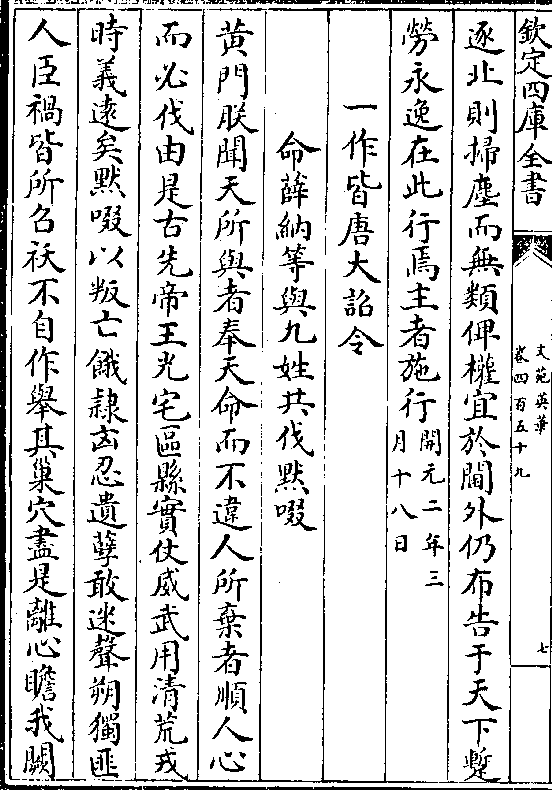 欽定四庫全書
文苑英華
卷四百五十九
七
逐北則掃塵而無類俾權宜於閫外仍布告于天下蹔
勞永逸在此行焉主者施行開元二年三
月十八日
一作皆唐大詔令
命薛納等與九姓共伐黙啜
黄門朕聞天所與者奉天命而不違人所棄者順人心
而必伐由是古先帝王光宅區縣實仗威武用清荒戎
時義遠矣黙啜以叛亡餓隷凶忍遺孽敢迷聲朔獨匪
人臣禍皆所召祅不自作舉其巢穴盡是離心瞻我闕